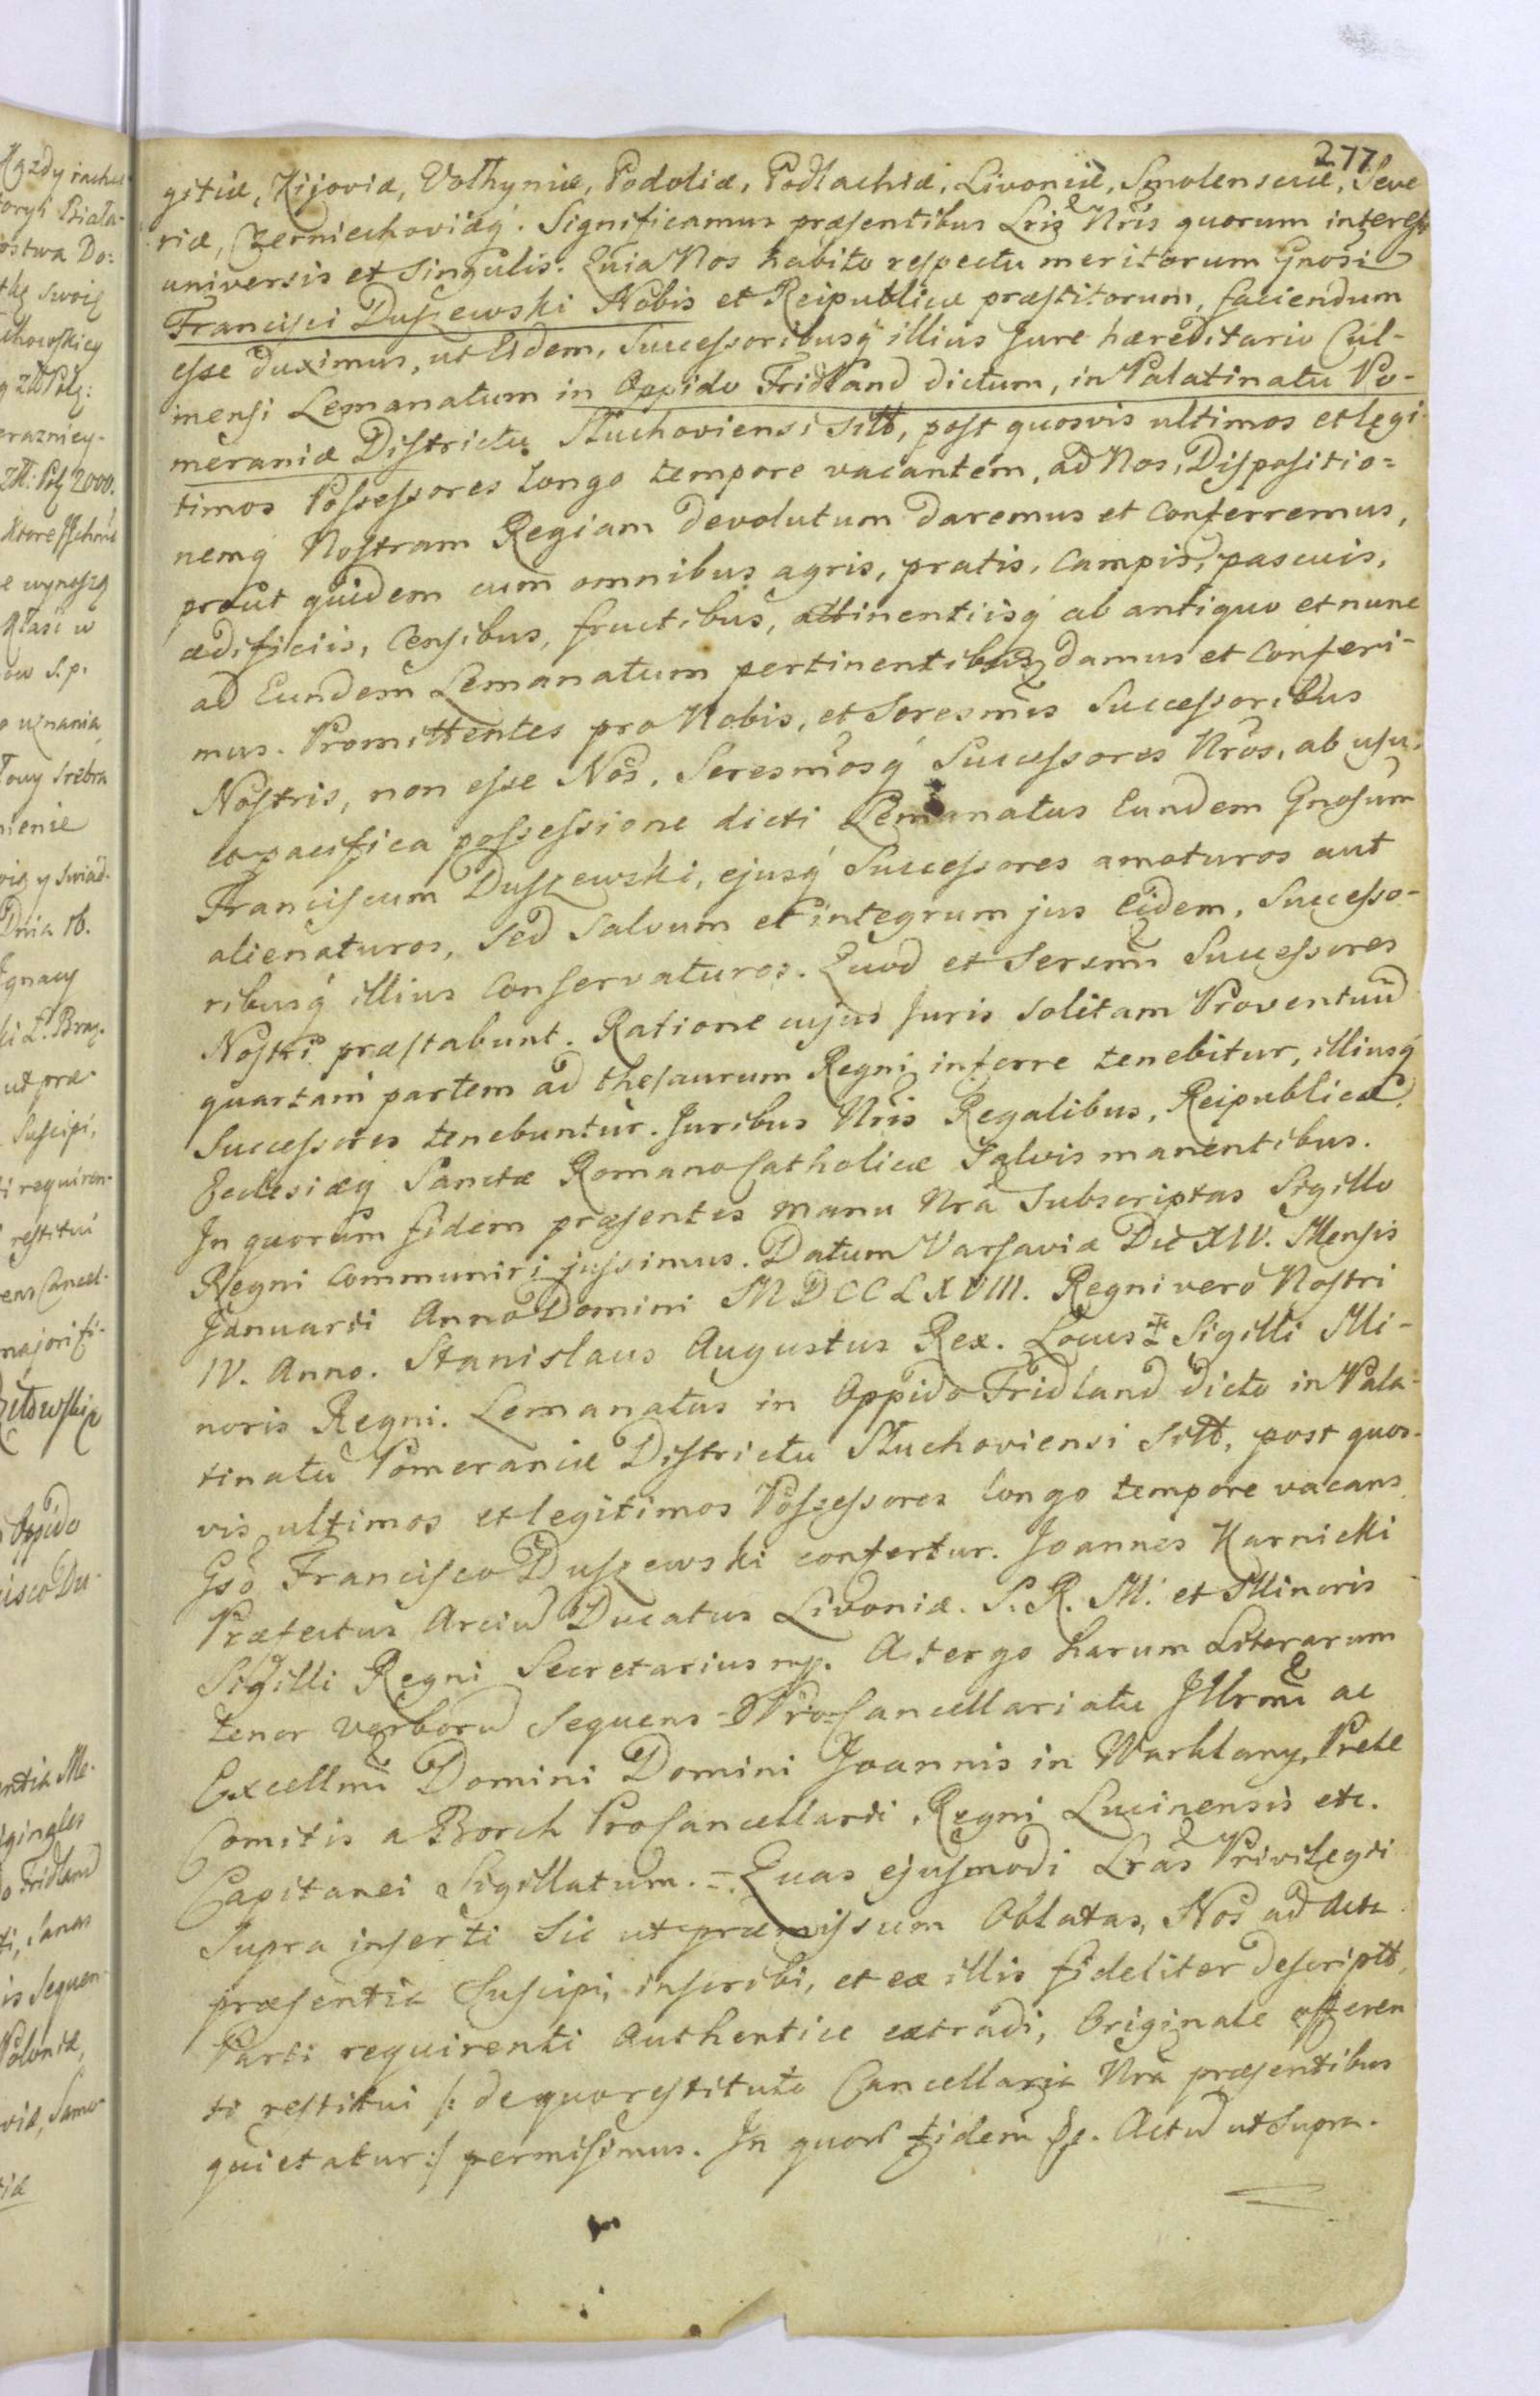 277
gitiæ, Kijoviæ, Volhyniæ, Podoliæ, Podlachiæ, Livoniæ, Smolensciæ, Seve
riæ, Czerniechoviæq́. Significamus præsentibus Lris Nris quorum interest
universis et Singulis. Quia Nos habito respectu meritorum Gnosi
Francisci Duszewski Nobis et Reipublicæ præstitorum, faciendum
esse duximus, ut Eidem, Successoribusq́ illius Jure hæreditario Cul-
mensi Lemanatum in Oppido Fridland dictum, in Palatinatu Po-
meraniæ Districtu Stuchoviensi sitt, post quosvis ultimos et legi-
timos Possessores longo tempore vacantem, ad Nos, Dispositio=
nemq́ Nostram Regiam devolutum daremus et Conferremus,
proút quidem cum omnibus agris, pratis, Campis, pascuis,
ædificiis, Censibus, fructibus, attinentiisq́ ab antiquo et nunc
ad Eundem Lemanatum pertinentibus damus et Conferi-
mus. Promittentes pro Nobis, et Seresmis Successoribus
Nostris, non esse Nos, Seresmosq́ Successores Nros, ab usu,
et pacifica possessione dicti Lemanatus Eundem Gnosum
Franciscum Duszewski, ejusq́ Successores amoturos aut
alienaturos, sed Salvum et integrum jus Eidem, Successo-
ribusq́ illius Conservaturos. Quod et Sersmi Successores
Nostri præstabunt. Ratione cujus Juris solitam Proventuū
quartam partem ad thesaurum Regni inferre tenebitur, illiusq́
Successores tenebuntur. Juribus Nris Regalibus, Reipublicæ,
Eclesiæq́ Sanctæ Romano Catholicæ Salvis manentibus.
In quorum fidem præsentes manu Nrâ Subscriptas Sigillo
Regni Communiri jussimus. Datum Varsaviæ Die XIV. Mensis
Januarii Anno Domini MDCCLXVIII. Regni vero Nostri
IV. Anno. Stanislaus Augustus Rex. Locus Sigilli Mi-
noris Regni. Lemanatus in Oppido Fridland dicto in Pala-
tinatu Pomeraniæ Districtu Stuchoviensi sitt, post quos-
vis ultimos et legitimos Possessores longo tempore vacans
Gsō Francisco Duszewski confertur. Joannes Karnicki
Præfectus Arciū Ducatus Livoniæ. S. R. M. et Minoris
Sigilli Regni Secretarius mp. A tergo harum Literarum
tenor verborū sequens = Pro Cancellariatu Jllrmi ac
Excellmi Domini Domini Joannis in Warklany, Prele
Comitis a Borch ProCancellarii Regni Lucinensis etc.
Capitanei Sigillatum. = Quas ejusmodi Lras Privilegii
Supra inserti sic ut præmissum Oblatas, Nos ad Acta
præsentia Suscipi, inscribi, et ex illis fideliter descriptt,
Parti requirenti Authentice extradi, Originale offeren
ti restitui /: de quo restituto Cancellaria Nrâ præsentibus
quietatur:/ permisimus. In quorū fidem &c. Actū ut Supra.